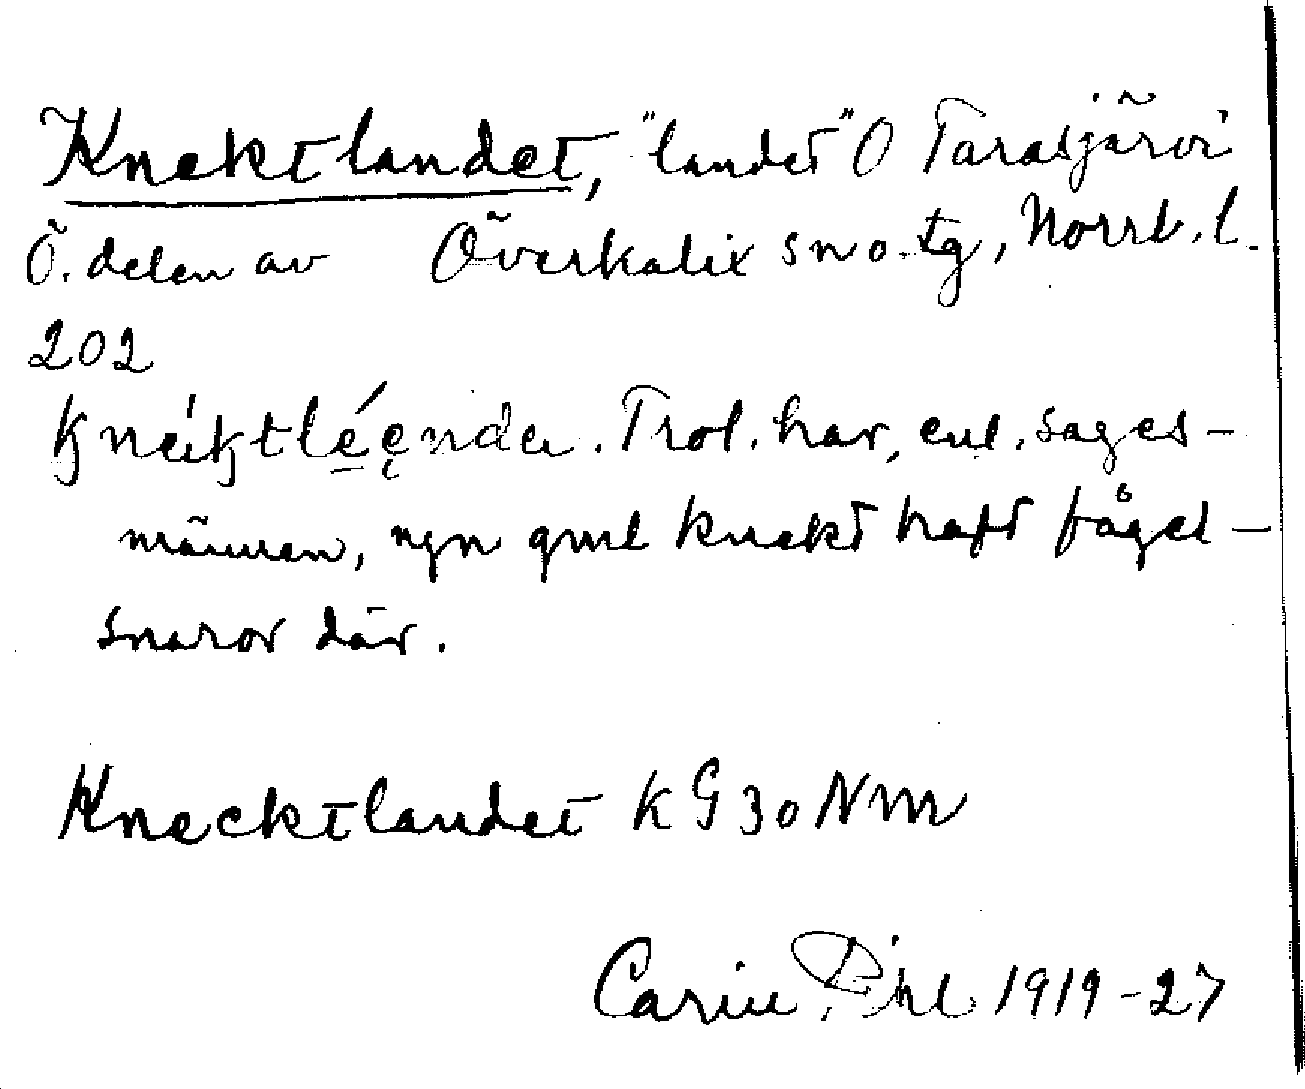 Knektlandet, "landet" O Tarasjärvi
Ö. delen av Överkalix sn o. tg, Norrb. l.
202
Trol. har, enl. sages-
männen, ngn gml knekt haft fågel-
snaror där.
Knecktlandet KG30NM
Carin Pihl 1919-27